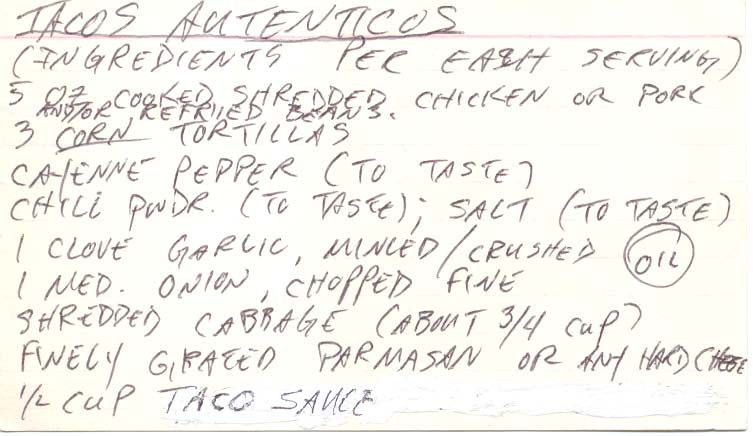 TACOS AUTENTICOS
(INGREDIENTS PER EACH SERVING)
5 OZ COOKED SHREDDED CHICKEN OR PORK
AND/OR REFRIED BEANS.
3 CORN TORTILLAS
CAYENNE PEPPER (TO TASTE)
CHILI PWDR. (TO TASTE); SALT (TO TASTE)
1 CLOVE GARLIC, MINCED/CRUSHED OIL
1 MED. ONION, CHOPPED FINE
SHREDDED CABBAGE (ABOUT 3/4 CUP)
FINELY GRATED PARMASAN OR ANY HARD CHEESE
1/2 CUP TACO SAUCE